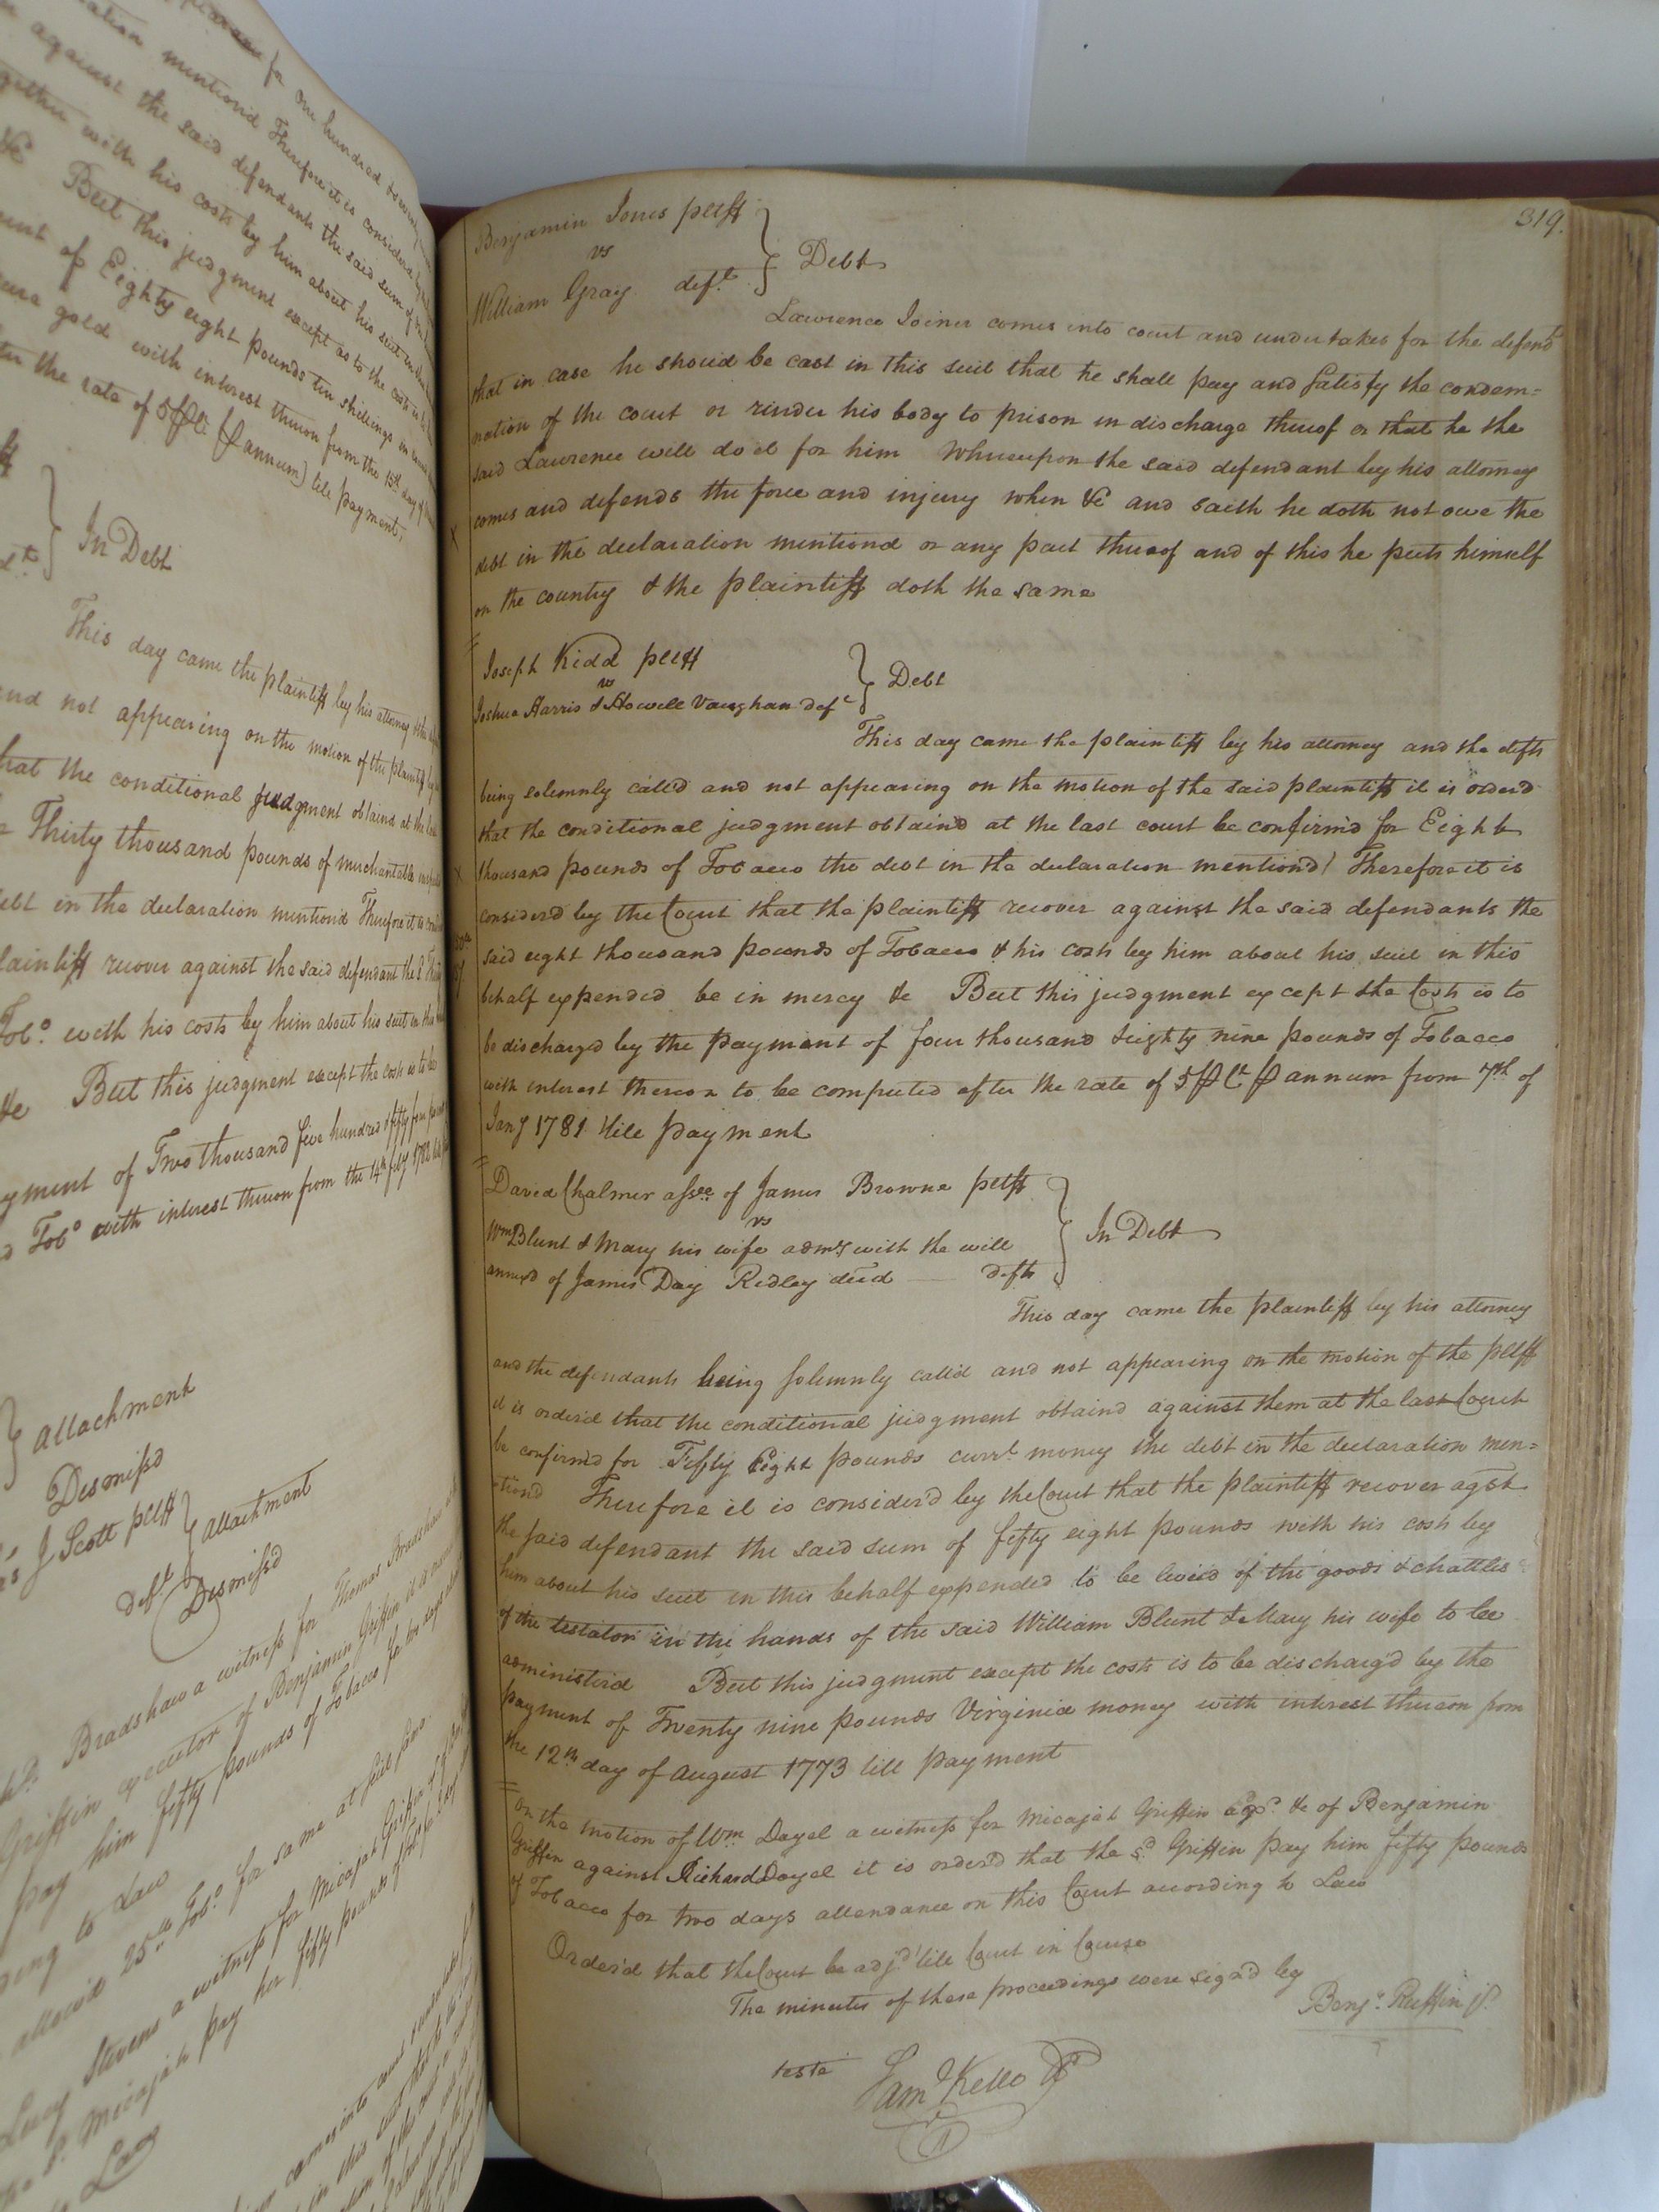 for one hundred & seventy
mention'd Therefore it is considered by the
against the said defendants the said sum of
together with his costs by him about his suit in this
&c But this judgment except as to the costs is to be
of Eighty eight pounds ten shillings
gold with interest thereon from the 15th day of
the rate of 5 ₱ Ct ₱ annum) till payment,
In Debt
This day came the plaintiff by his attorney & the
and not appearing on the motion of the plaintiff by
that the conditional judgment obtaind at the last
Thirty thousand pounds of merchantable
debt in the declaration mentiond Therefore it is
plaintiff recover against the said defendant the
Tobo. with his costs by him about his suit in this
&c But this judgment except the costs is to be
payment of Two thousand five hundred & fifty four
Tobo with interest thereon from the 14th feby 1782
attachment
Dismiss'd
J Scott pltff
deft. attachment
Dismiss'd
Bradshaw a witness for Thomas Bradshaw
Griffin executor of Benjamin Griffin it is
pay him fifty pounds of Tobacco for two days
to Law
allow'd 25 Tobo. for same at
Lucy Stevens a witness for Micajah Griffin
Sd. Micajah pay her fifty pounds of Tob
Law
comes into court
319.
Benjamin Jones pltff
vs
William Gray deft.
Debt
Lawrence Joiner comes into court and undertakes for the defendt
that in case he should be cast in this suit that he shall pay and satisfy the condem=
nation of the court or render his body to prison in discharge thereof or that he the
said Lawrence will do it for him Whereupon the said defendant by his attorney
comes and defends the force and injury when &c and saith he doth not owe the
debt in the declaration mentiond or any part thereof and of this he puts himself
on the country & the plaintiff doth the same
Joseph Kidd pltff
vs
Joshua Harris & Howell Vaughan deft
Debt
This day came the plaintiff by his attorney and the defts
being solemnly call'd and not appearing on the motion of the said plaintiff it is orderd
that the conditional judgment obtain'd at the last court be confirm'd for Eight
thousand pounds of Tobacco the debt in the declaration mention'd) Therefore it is
consider'd by the Court that the plaintiff recover against the said defendants the
said eight thousand pounds of Tobacco & his costs by him about his suit in this
behalf expended be in mercy &c But this judgment except the Costs is to
be discharged by the payment of four thousand & eighty nine pounds of Tobacco
with interest thereon to be computed after the rate of 5 ₱ Ct ₱ annum from 7th of
Jany 1781 till payment
David Chalmer assee. of James Browne pltff
vs
Wm Blunt & Mary his wife admrs with the will
annexd of James Day Ridley decd — defts
In Debt
This day came the plaintiff by his attorney
and the defendants being solemnly call'd and not appearing on the motion of the pltff
it is order'd that the conditional judgment obtaind against them at the last Court
be confirm'd for Fifty Eight pounds currt money the debt in the declaration men=
=tiond Therefore it is consider'd by the Court that the plaintiff recover agst
the said defendant the said sum of fifty eight pounds with his costs by
him about his suit in this behalf expended to be levied of the goods & chattles
of the testator in the hands of the said William Blunt & Mary his wife to be
administerd But this judgment except the costs is to be discharg'd by the
payment of Twenty nine pounds Virginia money with interest thereon from
the 12th day of August 1773 till payment
On the motion of Wm Dayel a witness for Micajah Griffin exor. &c of Benjamin
Griffin against Richard Dayel it is order'd that the sd. Griffin pay him fifty pounds
of Tobacco for two days attendance on this Court according to Law
Order'd that the Court be adjd till Court in Course
The minutes of these proceedings were sign'd by
Benja. Ruffin jr.
teste Saml Kello